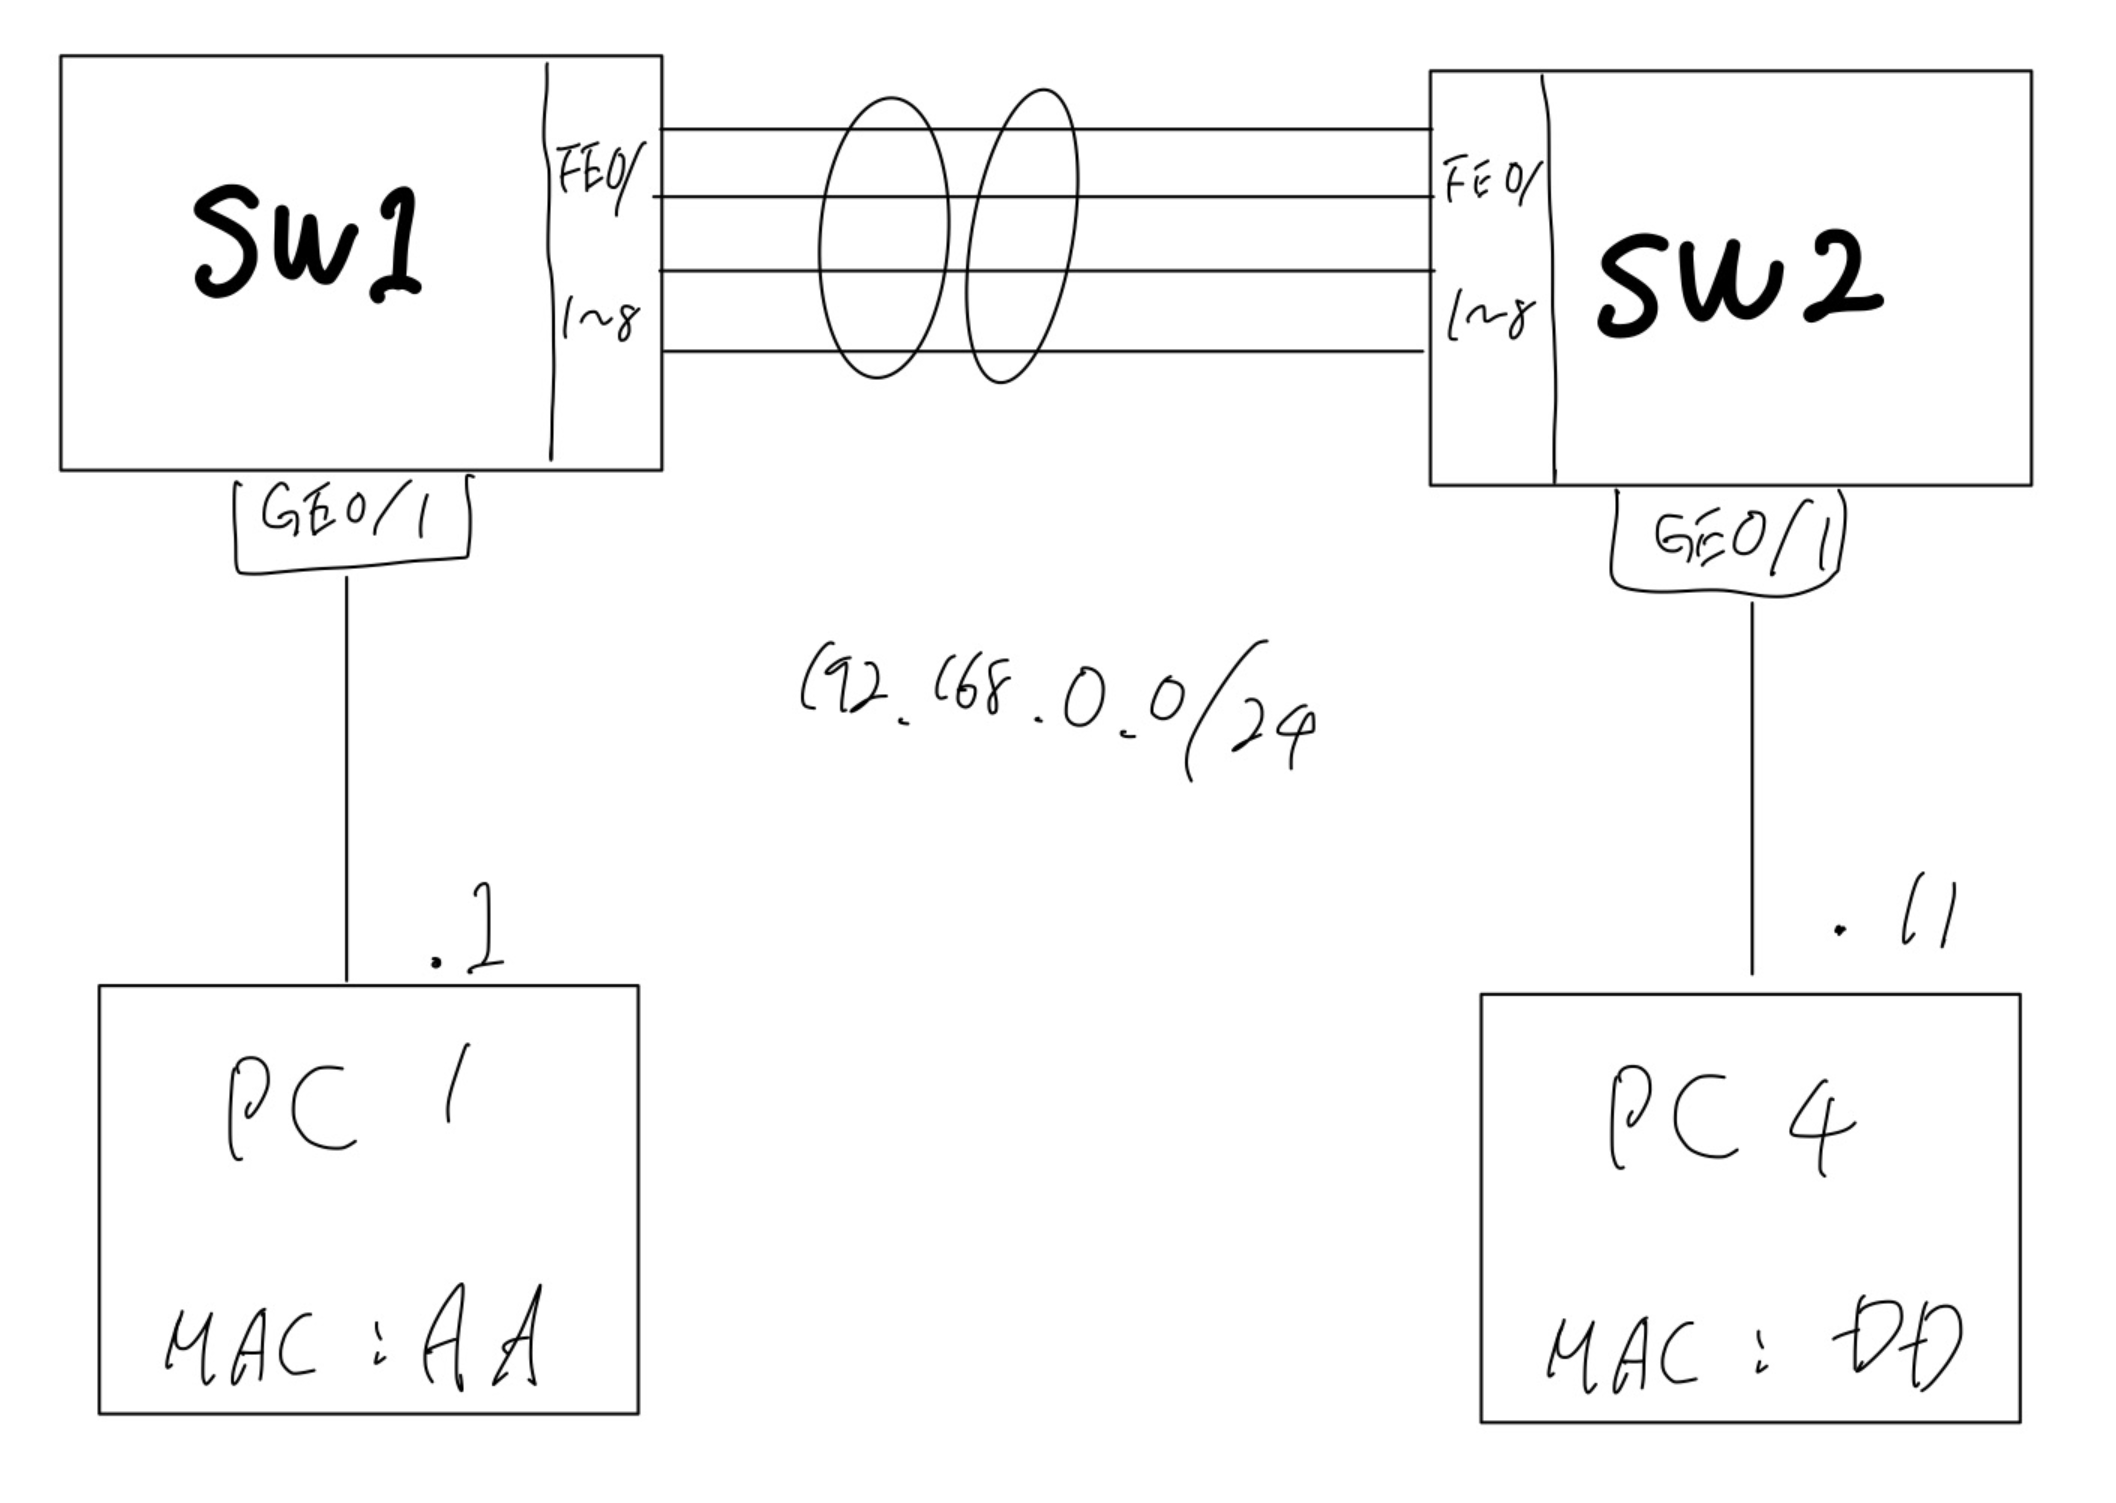 SW1
FE0/
1~8
FE0/
1~8
SW2
GE0/1
GE0/1
192.168.0.0/24
.1
.11
PC 1
MAC : AA
PC 4
MAC : DD